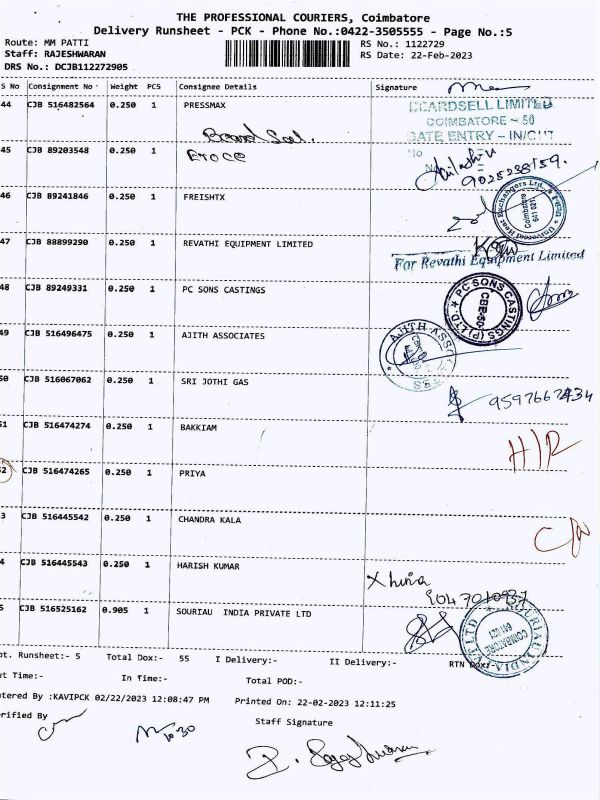 THE PROFESSIONAL COURIERS, Coimbatore
Delivery Runsheet - PCK - Phone No.:0422-3505555 - Page No.:5
Route: MM PATTI
RS No.: 1122729
Staff: RAJESHWARAN
RS Date: 22-Feb-2023
DRS No.: DCJB112272905
S No Consignment No Weight PCS Consignee Details Signature
44 CJB 516482564 0.250 1 PRESSMAX
BEARDSELL LIMITED
COIMBATORE - 50
GATE ENTRY - IN/OUT
No
45 CJB 89203548 0.250 1
9025238159.
46 CJB 89241846 0.250 1 FREISHTX
Universal Heat Exchangers Ltd.
Coimbatore
641 021
47 CJB 88899290 0.250 1 REVATHI EQUIPMENT LIMITED
For Revathi Equipment Limited
48 CJB 89249331 0.250 1 PC SONS CASTINGS
PC SONS CASTINGS (P) LTD.
CBE-50
49 CJB 516496475 0.250 1 AJITH ASSOCIATES
AJITH ASSOCIATES
50 CJB 516067062 0.250 1 SRI JOTHI GAS
9597662434
51 CJB 516474274 0.250 1 BAKKIAM
H/R
52 CJB 516474265 0.250 1 PRIYA
3 CJB 516445542 0.250 1 CHANDRA KALA
4 CJB 516445543 0.250 1 HARISH KUMAR
5 CJB 516525162 0.905 1 SOURIAU INDIA PRIVATE LTD
SOURIAU INDIA PVT LTD
COIMBATORE
641 021
pt. Runsheet:- 5 Total Dox:- 55 I Delivery:- II Delivery:- RTN Dox:-
ut Time:- In Time:- Total POD:-
ntered By :KAVIPCK 02/22/2023 12:08:47 PM Printed On: 22-02-2023 12:11:25
erified By
Staff Signature
10.30